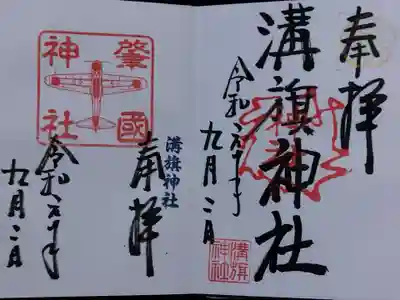 奉拝
溝旗神社
令和元年
九月二日
溝旗
神社
肇國
神社
溝旗神社
奉拝
令和元年
九月二日